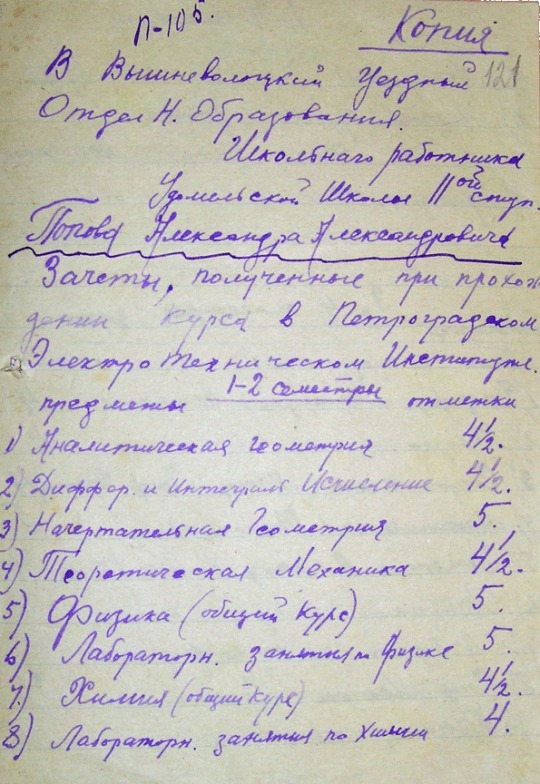 П-105.
Копия
121
В Вышневолоцкий Уездный
Отдел Н. Образования.
Школьнаго работника
Удомельской Школы II ой ступ.
Попова Александра Александровича
Зачеты, полученные при прохож-
дении курса в Петроградском
Электротехническом Институте.
1-2 семестры
предметы отметки
1) Аналитическая геометрия 4½.
2) Диффер. и Интеграль Исчисление 4½.
3) Начертательная Геометрия 5.
4) Теоретическая Механика 4½.
5) Физика (общий курс) 5.
6) Лабораторн. занятия по Физике 5.
7) Химия (общий курс) 4½.
8) Лабораторн. занятия по химии 4.